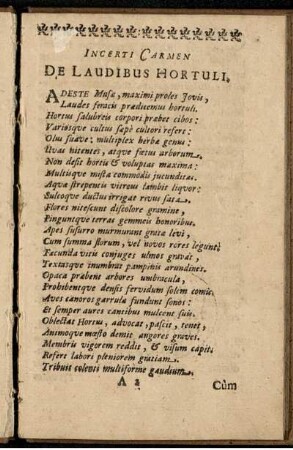 INCERTI CARMEN
DE LAUDIBUS HORTULI.
ADESTE Musæ, maximi proles Jovis,
Laudes feracis prædicemus hortuli.
Hortus salubreis corpori præbet cibos:
Variosque cultus sæpè cultori refert:
Olus suave, multiplex herbæ genus:
Uvas nitentes, atque fœtus arborum.
Non desit hortis & voluptas maxima:
Multisque mista commodis jucunditas.
Aquæ strepentis vitreus lambit liquor:
Sulcoque ductus irrigat rivus sata.
Flores nitescunt discolore gramine,
Pinguntque terras gemmeis honoribus.
Apes susurro murmurant gratæ levi,
Cum summa florum, vel novos rores legunt.
Fæcunda vitis conjuges ulmos gravat,
Textasque inumbrat pampinis arundines.
Opaca præbent arbores umbracula,
Prohibentque densis fervidum solem comis.
Aves canoros garrulæ fundunt sonos:
Et semper aures cantibus mulcent suis.
Oblectat Hortus, advocat, pascit, tenet,
Animoque mæsto demit angores graves.
Membris vigorem reddit, & visum capit.
Refert labori pleniorem gratiam.
Tribuit colenti multiforme gaudium.
A 2 Cùm